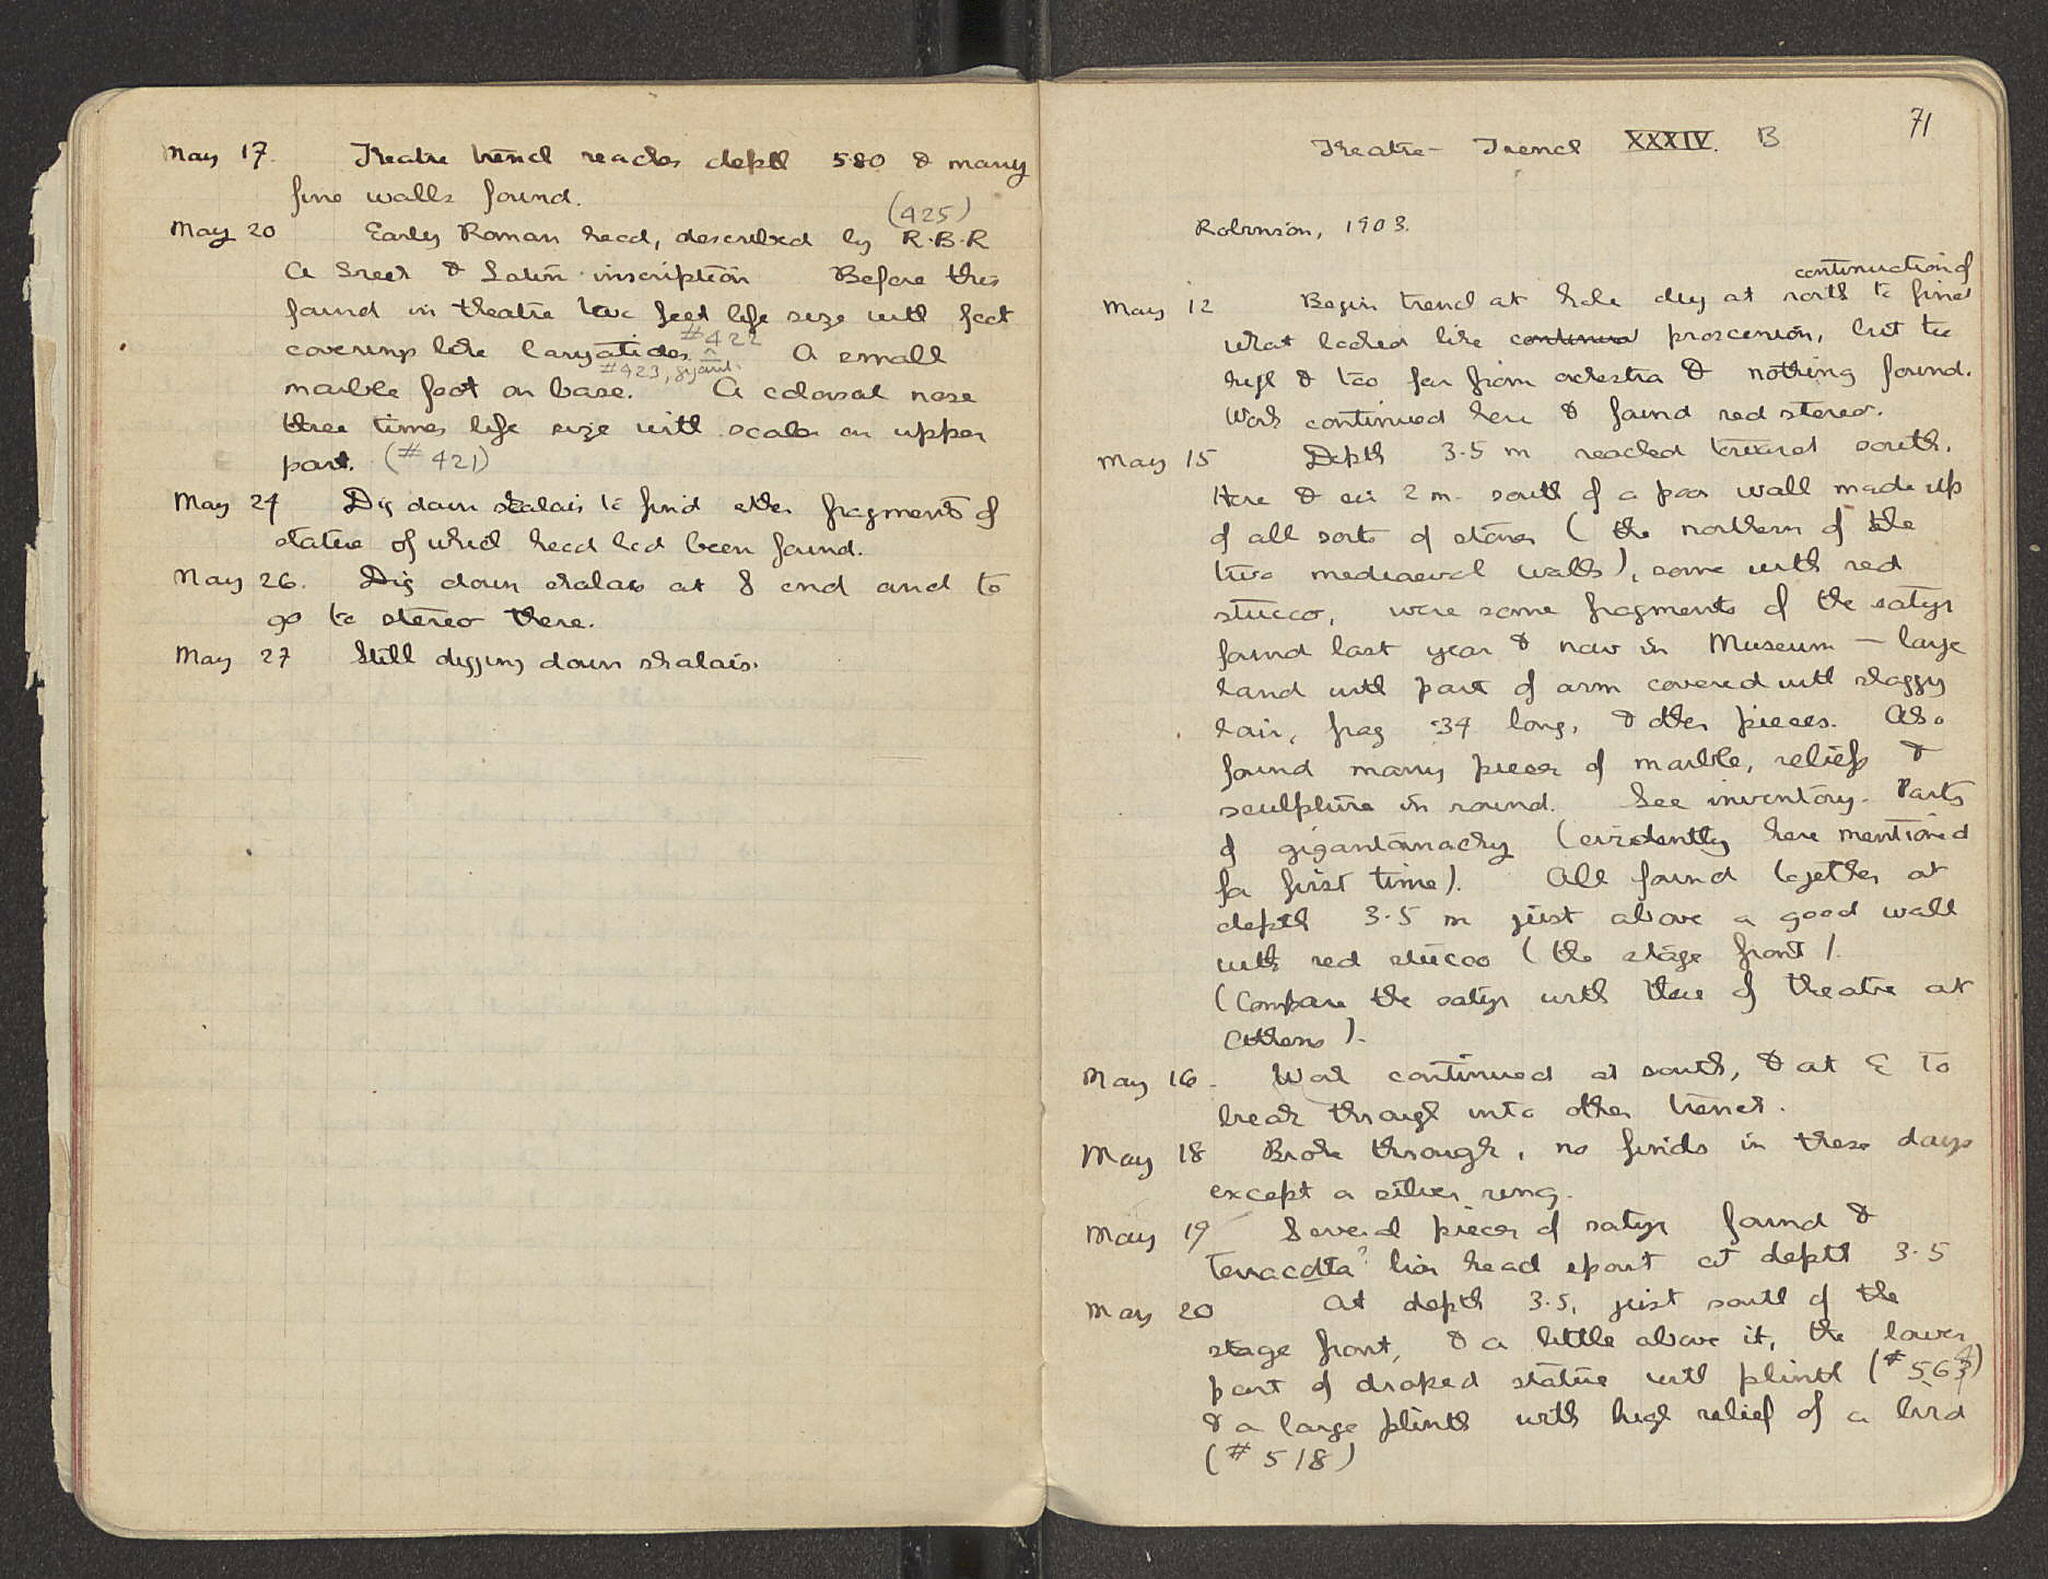 May 17. Theatre trench reaches depth 5.80 & many
fine walls found.
(425)
May 20 Early Roman head, described by R.B.R
A Greek & Latin inscription Before this
found in theatre two feet life size with foot
#422
coverings like Caryatides. A small
#423, giant.
marble foot on base. A colossal nose
three times life size with scales on upper
part. (#421)
May 24 Dig down skalais to find other fragments of
statue of which head had been found.
May 26. Dig down skalais at S end and to
go to stereo there.
May 27 Still digging down skalais.
71
Theatre – Trench XXXIV. B
Robinson, 1903.
continuation of
May 12 Begin trench at hole dug at north to find
what looked like continued proscenion, but too
high & too far from orchestra & nothing found.
Work continued here & found red stereo.
May 15 Depth 3.5 m reached toward south.
Here & 2 m. south of a poor wall made up
of all sorts of stones (the northern of the
two mediaeval walls), some with red
stucco, were some fragments of the satyr
found last year & now in Museum — large
hand with part of arm covered with shaggy
hair, frag .34 long, & other pieces. Also
found many pieces of marble, reliefs &
sculpture in round. See inventory. Parts
of gigantomachy (evidently here mentioned
for first time). All found together at
depth 3.5 m just above a good wall
with red stucco (the stage front).
(Compare the satyr with those of theatre at
Athens).
May 16. Work continued at south, & at E to
break through into other trench.
May 18 Broke through, no finds in these days
except a silver ring.
May 19 Several pieces of satyr found &
terracotta? lion head spout at depth 3.5
May 20 At depth 3.5, just south of the
stage front, & a little above it, the lower
part of draped statue with plinth (#564)
& a large plinth with high relief of a bird
(#518)